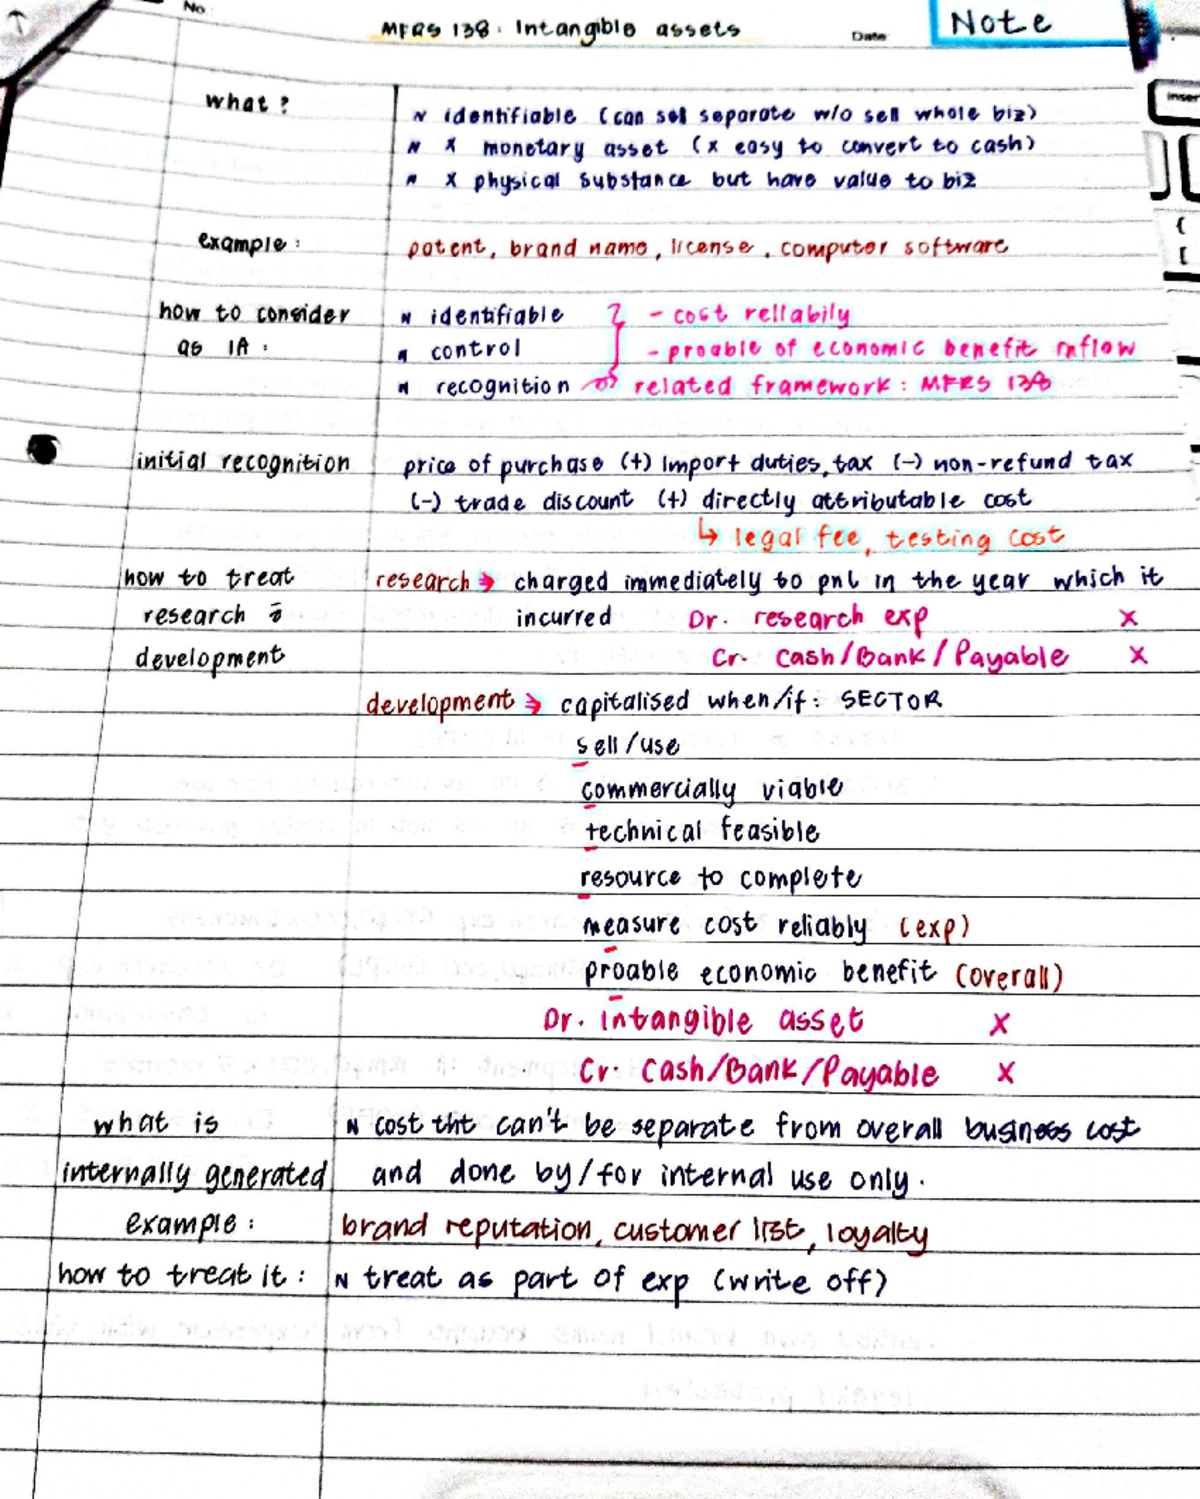 No.
MFRS 138: Intangible assets
Date
Note
what?
~ identifiable (can sell separate w/o sell whole biz)
~ x monetary asset (x easy to convert to cash)
~ x physical substance but have value to biz
example:
patent, brand name, license, computer software
how to consider
as IA:
~ identifiable
~ control
~ recognition
- cost reliabily
- proable of economic benefit inflow
related framework: MFRS 138
initial recognition
price of purchase (+) import duties, tax (-) non-refund tax
(-) trade discount (+) directly attributable cost
↳ legal fee, testing cost
how to treat
research &
development
research → charged immediately to pnl in the year which it
incurred
Dr. research exp x
Cr. Cash/Bank/Payable x
development → capitalised when/if: SECTOR
sell/use
commercially viable
technical feasible
resource to complete
measure cost reliably (exp)
proable economic benefit (overall)
Dr. intangible asset x
Cr. Cash/Bank/Payable x
what is
internally generated
~ cost tht can't be separate from overall business cost
and done by/for internal use only.
example:
brand reputation, customer list, loyalty
how to treat it:
~ treat as part of exp (write off)